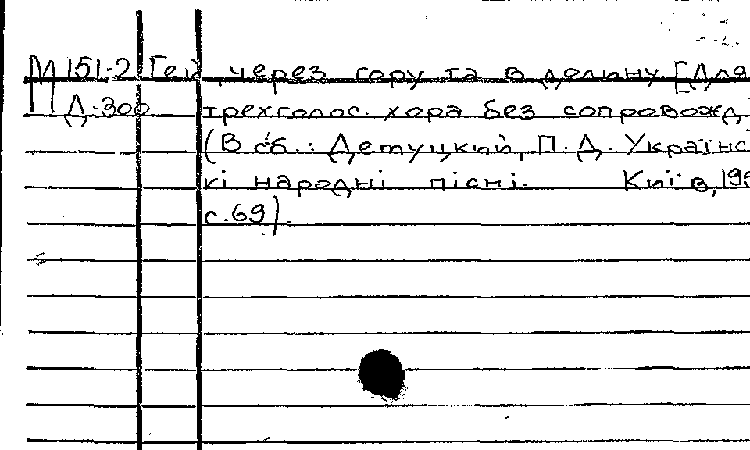 М 151-2 Гей, через гору та в долину [Для
Д-300 трехголос. хора без сопровожд.
(В сб.: Демуцкий, П. Д. Українс-
кі народні пісні. Київ, 196
с. 69).